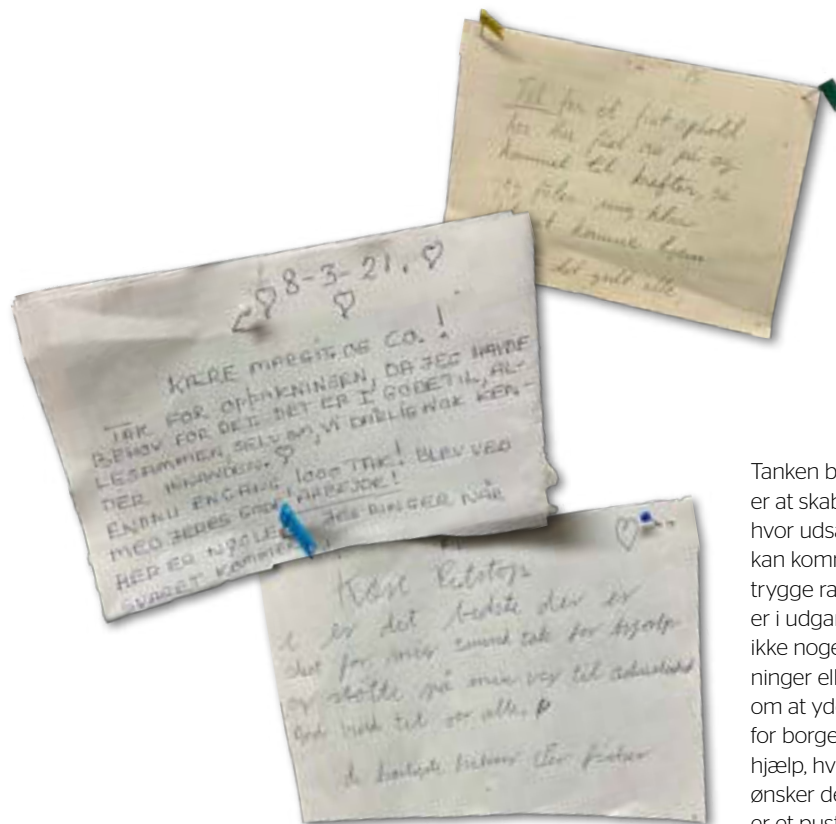 et fint ophold
har fået ro på og
kommet til kræfter så
jeg føler mig klar
at komme hjem
det godt alle
8-3-21.
KÆRE MARGIT OG CO.!
TAK FOR OPBAKNINGEN, DA JEG HAVDE
BEHOV FOR DET. DET ER I GODE TIL, AL-
LESAMMEN, SELV OM, VI DÅRLIG NOK KEN-
DER HINANDEN.
ENDNU ENGANG 1000 TAK! BLEV VED
MED JERES GODE ARBEJDE!
HER ER NØGLEN JEG RINGER NÅR
SVARET KOMMER
Kære
er det bedste der er
sket for mig tusind tak for hjælp
og støtte på min vej til
til jer alle.
Tanken b
er at skab
hvor udsa
kan komm
trygge ra
er i udgar
ikke noge
ninger ell
om at yde
for borge
hjælp, hv
ønsker de
er et pust